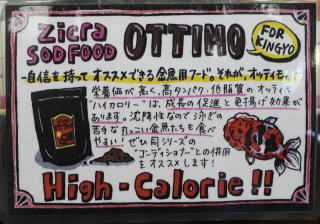 Zicra
SOD FOOD
OTTIMO
FOR
KINGYO
自信を持ってオススメできる金魚用フード。それが、オッティモ
栄養価が高く、高タンパク・低脂質のオッティモ
"ハイカロリー"は、成長の促進と色揚げ効果が
あります。沈降性なので泳ぎの
苦手な丸っこい金魚たちも食べ
やすい!ぜひ同シリーズの
"コンディショナー"との併用
をオススメします!
High-Calorie!!